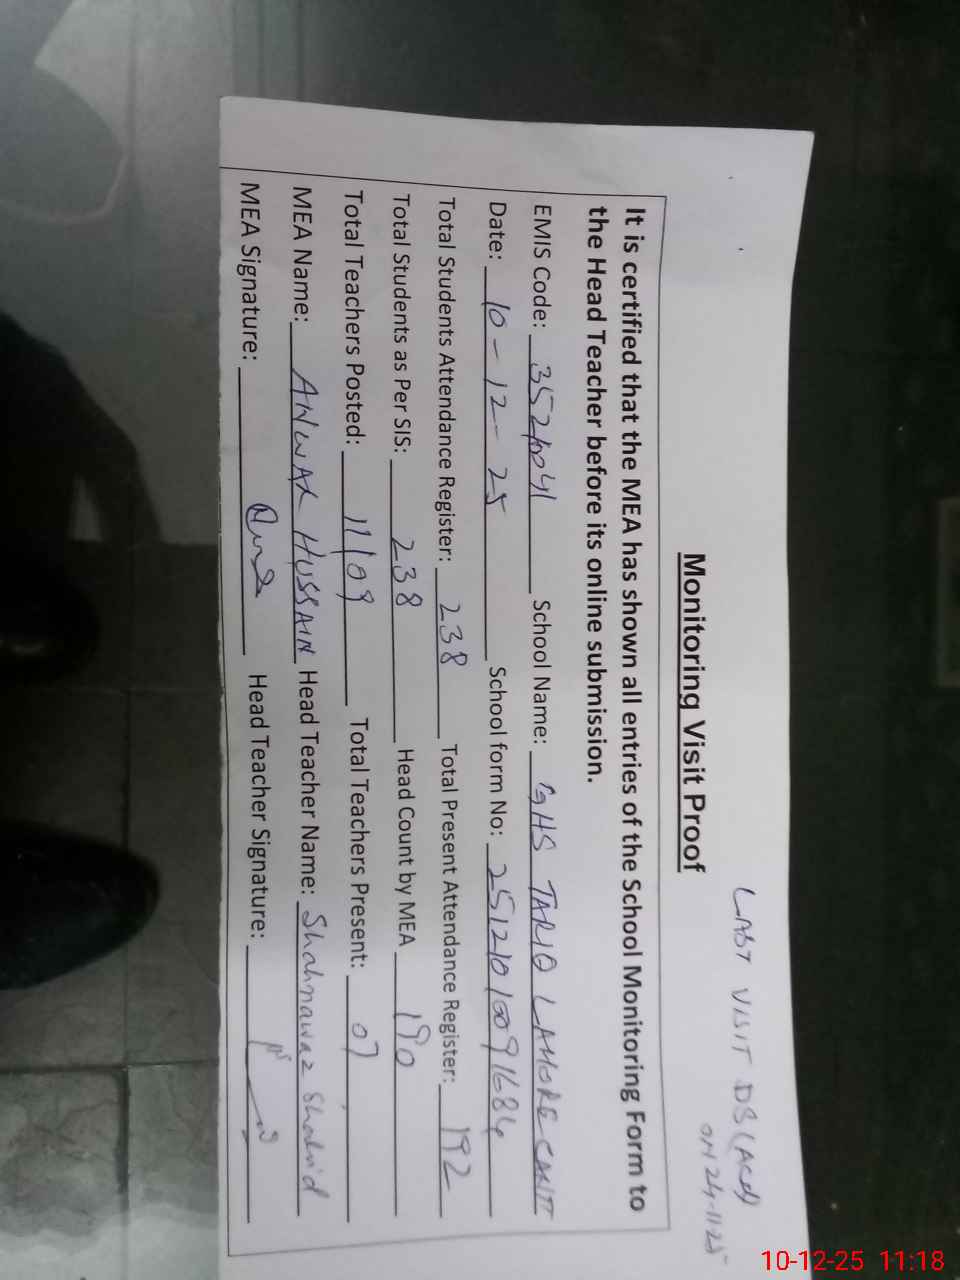 LAST VISIT DS (ACD)
ON 24-11-25
Monitoring Visit Proof
It is certified that the MEA has shown all entries of the School Monitoring Form to
the Head Teacher before its online submission.
EMIS Code: 35210041 School Name: GHS TARIQ LAHORE CANTT
Date: 10-12-25 School form No:
Total Students Attendance Register: 238 Total Present Attendance Register: 192
Total Students as Per SIS: 238 Head Count by MEA 190
Total Teachers Posted: 11/09 Total Teachers Present: 07
MEA Name: ANWAR HUSSAIN Head Teacher Name: Shahnawaz Shahid
MEA Signature: Head Teacher Signature:
10-12-25 11:18